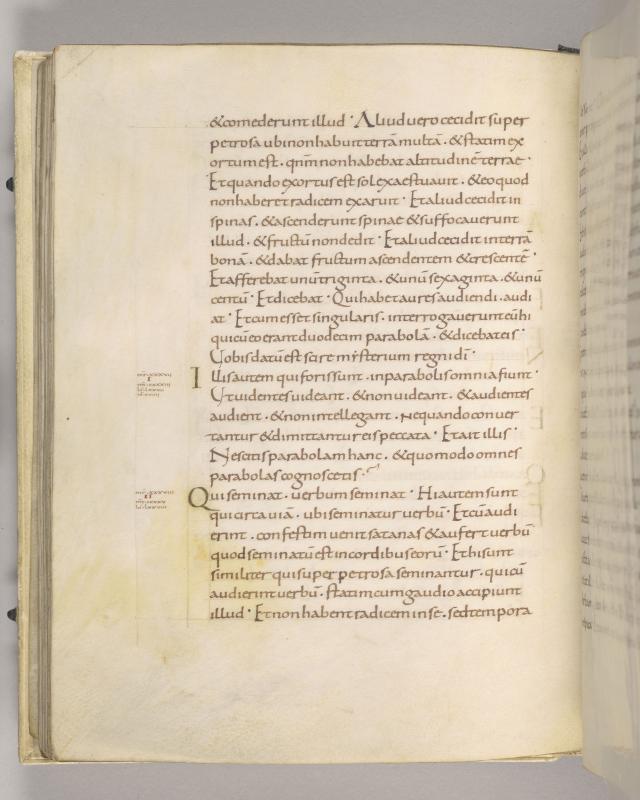 & comederunt illud · Aliud uero cecidit super
petrosa ubi non habuit terrā multā . & statim ex
ortum est . qnm̄ non habebat altitudinē terrae ·
Et quando exortus est sol exaestuauit . & eo quod
non haberet radicem exaruit · Et aliud cecidit in
spinas . & ascenderunt spinae & suffocauerunt
illud . & fructū non dedit · Et aliud cecidit in terrā
bonā . & dabat fructum ascendentem & crescentē ·
Et afferebat unū triginta . & unū sexaginta . & unū
centū · Et dicebat · Qui habet aures audiendi . audi
at · Et cum esset singularis . interrogauerunt eū hi
qui cū eo erant duodecim parabolā . & dicebat eis ·
Uobis datū est scire mysterium regni dī ·
Illis autem qui foris sunt . in parabolis omnia fiunt ·
Ut uidentes uideant . & non uideant . & audientes
audient . & non intellegant . Nequando conuer
tantur & dimittantur eis peccata · Et ait illis ·
Nescitis parabolam hanc . & quomodo omnes
parabolas cognoscetis ·
Qui seminat . uerbum seminat · Hi autem sunt
qui circa uiā . ubi seminatur uerbū · Et cū audi
erint . confestim uenit satanas & aufert uerbū
quod seminatū est in cordibus eorū · Et hi sunt
similiter qui super petrosa seminantur . qui cū
audierint uerbū . statim cum gaudio accipiunt
illud · Et non habent radicem in se . sed tempora